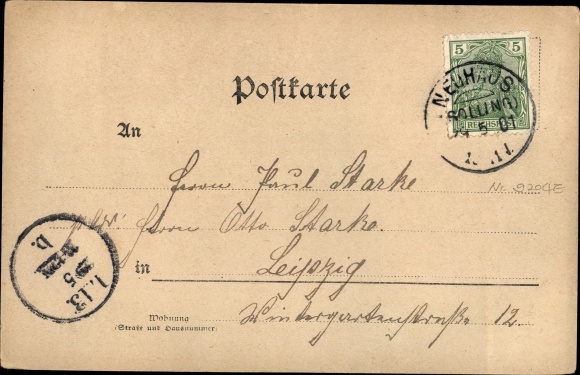 5 5
REICHSP
NEUHAUS
(SOLLING)
5 01
Postkarte
An
Herrn Paul Starke
Nr. 9204E
Herrn Otto Starke.
in Leipzig
Wohnung
(Straße und Hausnummer)
Wintergartenstraße 12.
1.13.
5